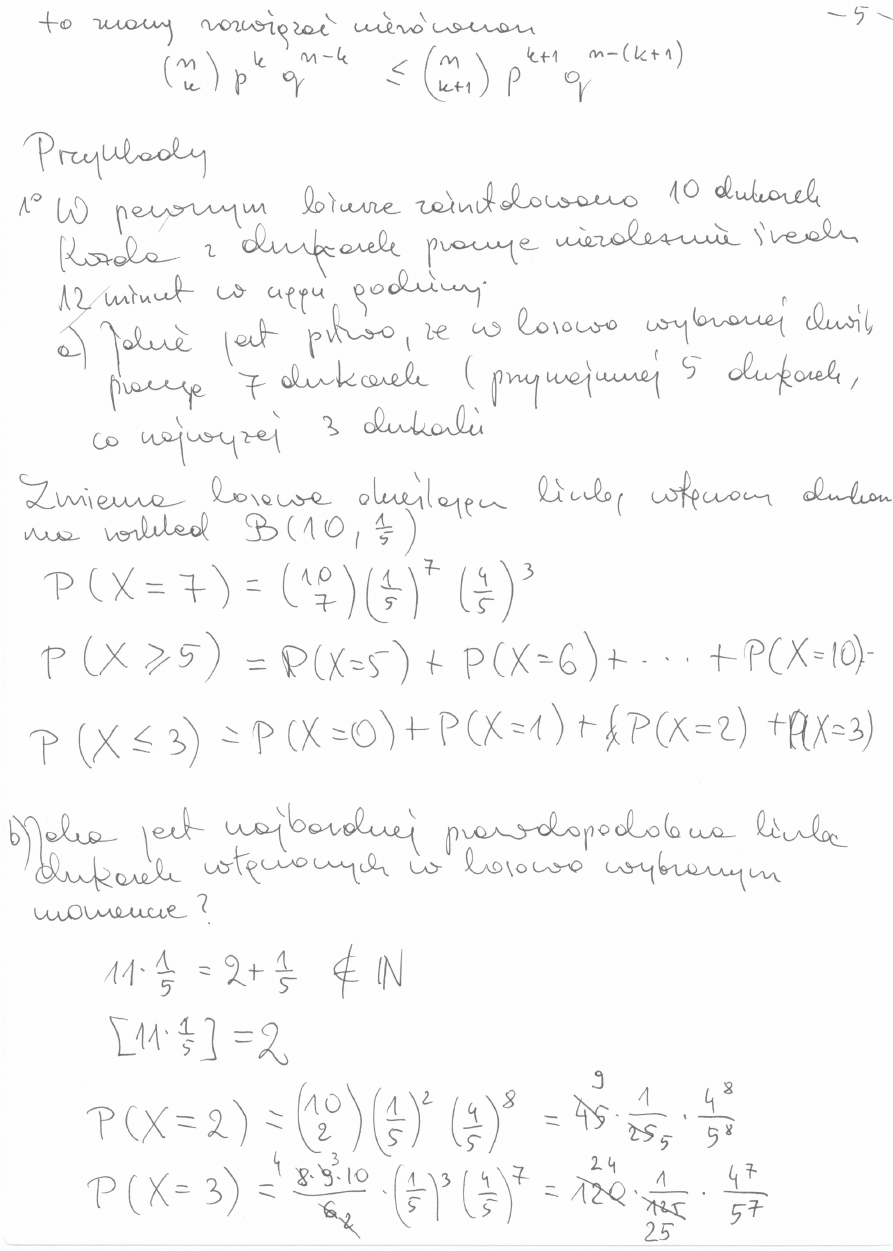 - 5 -
to mamy rozwiązać nierówność
(n k) p^k q^(n-k) ≤ (n k+1) p^(k+1) q^(n-(k+1))
Przykłady
1° W pewnym biurze zainstalowano 10 drukarek
Każda z drukarek pracuje niezależnie średn
12 minut w ciągu godziny.
a) Jakie jest pstwo, że w losowo wybranej chwili
pracuje 7 drukarek (przynajmniej 5 drukarek,
co najwyżej 3 drukarki
Zmienna losowa określająca liczbę włączon drukar
ma rozkład B(10, 1/5)
P(X = 7) = (10 7)(1/5)^7 (4/5)^3
P(X ≥ 5) = P(X=5) + P(X=6) + ... + P(X=10)
P(X ≤ 3) = P(X=0) + P(X=1) + P(X=2) + P(X=3)
b) Jaka jest najbardziej prawdopodobna liczba
drukarek włączonych w losowo wybranym
momencie?
11·1/5 = 2 + 1/5 ∉ ℕ
[11·1/5] = 2
P(X = 2) = (10 2)(1/5)^2 (4/5)^8 = 45 9 · 1/25 5 · 4^8/5^8
P(X = 3) = 4 8·9 3·10/6 2 · (1/5)^3 (4/5)^7 = 120 24 · 1/125 25 · 4^7/5^7